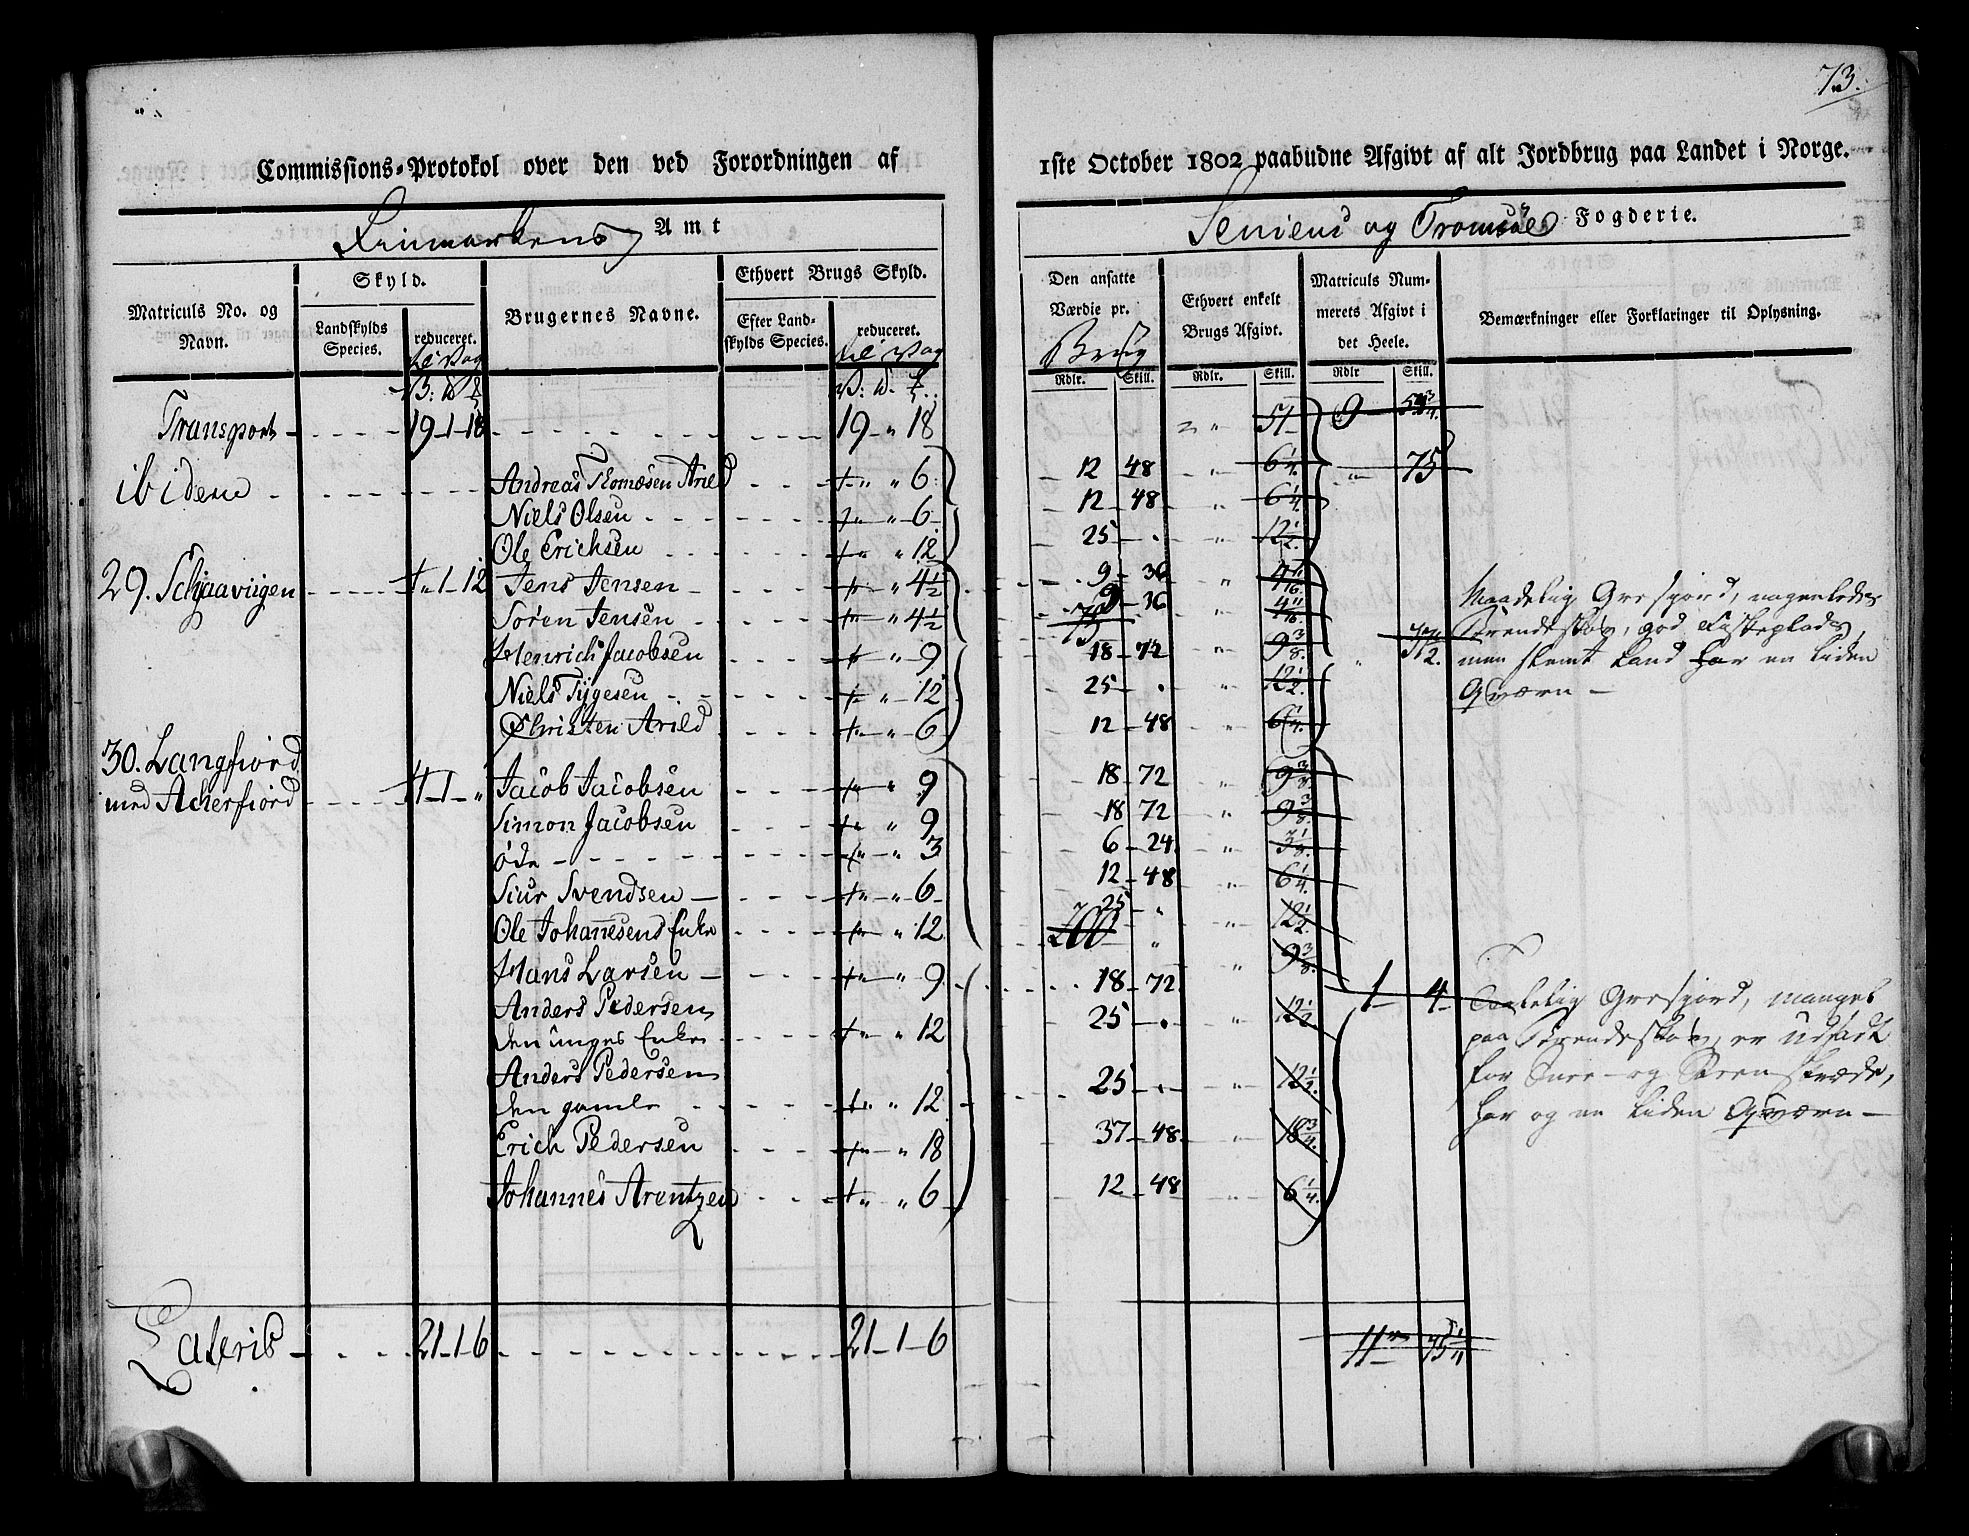 73.
Commissions-Protokol over den ved Forordningen af
1ste October 1802 paabudne Afgivt af alt Jordbrug paa Landet i Norge.
Finmarkens Amt
Seniens og Tromsöe Fogderie.
Matriculs No. og Navn.
Skyld.
Landskylds Species.
reduceret.
Brugernes Navne.
Ethvert Brugs Skyld.
Efter Landskylds Species.
reduceret.
Den ansatte Værdie pr. Brug
Ethvert enkelt Brugs Afgivt.
Matriculs Nummerets Afgivt i det Heele.
Bemærkninger eller Forklaringer til Oplysning.
Rdlr. Skill. Rdlr. Skill. Rdlr Skill.
Transport 19-1-18 19 " 18 51 9
ibidem Andreas Thomæsen Arild " 6 12 48 6 1/4. 75
Niels Olsen " 6 12 48 6 1/4.
Ole Erichsen " 12 25 . 12 1/2.
29. Schjaaviigen " 1 12 Jens Jensen " 4 1/2 9 36 4 11/16.
Sören Jensen " 4 1/2 9 36 4 11/16
75
Henrich Jacobsen " 9 18 72 9 3/8. 37 1/2.
Niels Tygesen " 12 25 . 12 1/2.
Christen Arild " 6 12 48 6 1/4.
Maadelig Græsfiord, nogenledes
Brændeskov, god Fiskeplads,
men slemt Land har en liden
Qværn —
30. Langfiord
med Ackerfiord 1 " Jacob Jacobsen " 9 18 72 9 3/8.
Simon Jacobsen " 9 18 72 9 3/8.
öde " 3 6 24 3 1/8.
Siur Svendsen " 6 12 48 6 1/4.
Ole Johannesens Enke " 12 25 " 12 1/2.
200 "
Hans Larsen " 9 18 72 9 3/8. 1 4
Anders Pedersen
den unges Enke " 12 25 . 12 1/2.
Anders Pedersen
den gamle " 12 25 . 12 1/2.
Erich Pedersen " 18 37 48 18 3/4.
Johannes Arentzen " 6 12 48 6 1/4.
Taalelig Græsfiord, mangel
paa Brændeskov, er udsadt
for Snee- og Steenskræde,
har og en liden Qværn —
Lateris 21-1-6 21-1-6 11